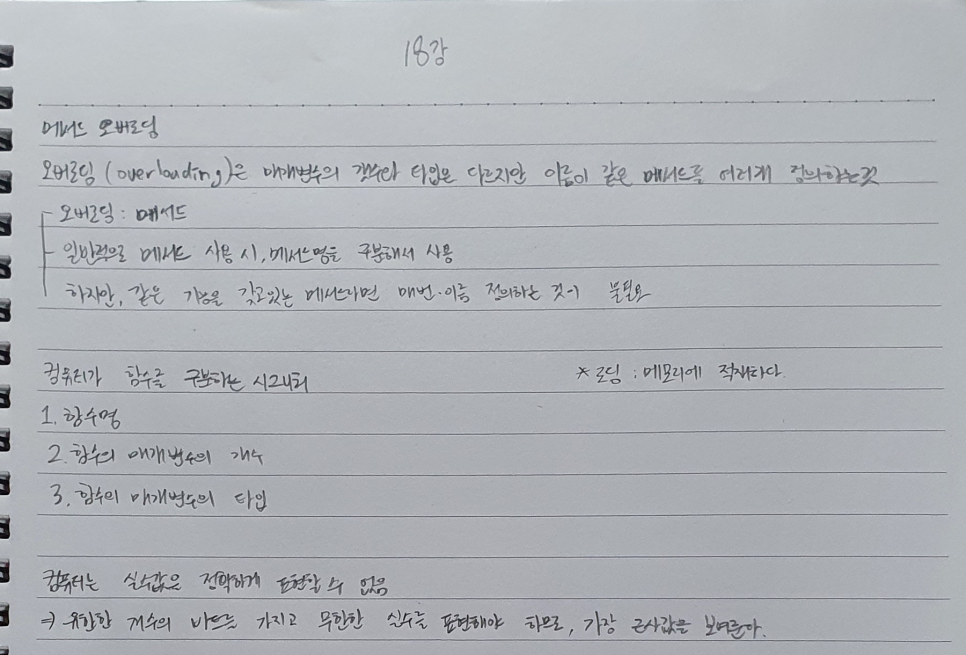 18강
메서드 오버로딩
오버로딩(overloading)은 매개변수의 갯수와 타입은 다르지만 이름이 같은 메서드를 여러개 정의하는것
오버로딩 : 메서드
일반적으로 메서드 사용 시, 메서드명을 구분해서 사용
하지만, 같은 기능을 갖고있는 메서드라면 매번 이름 정의하는 것이 불필요
컴퓨터가 함수를 구분하는 시그니처 * 로딩 : 메모리에 적재하다.
1. 함수명
2. 함수의 매개변수의 개수
3. 함수의 매개변수의 타입
컴퓨터는 실수값은 정확하게 표현할 수 없음
⇒ 유한한 개수의 비트를 가지고 무한한 실수를 표현해야 하므로, 가장 근사값을 보여준다.